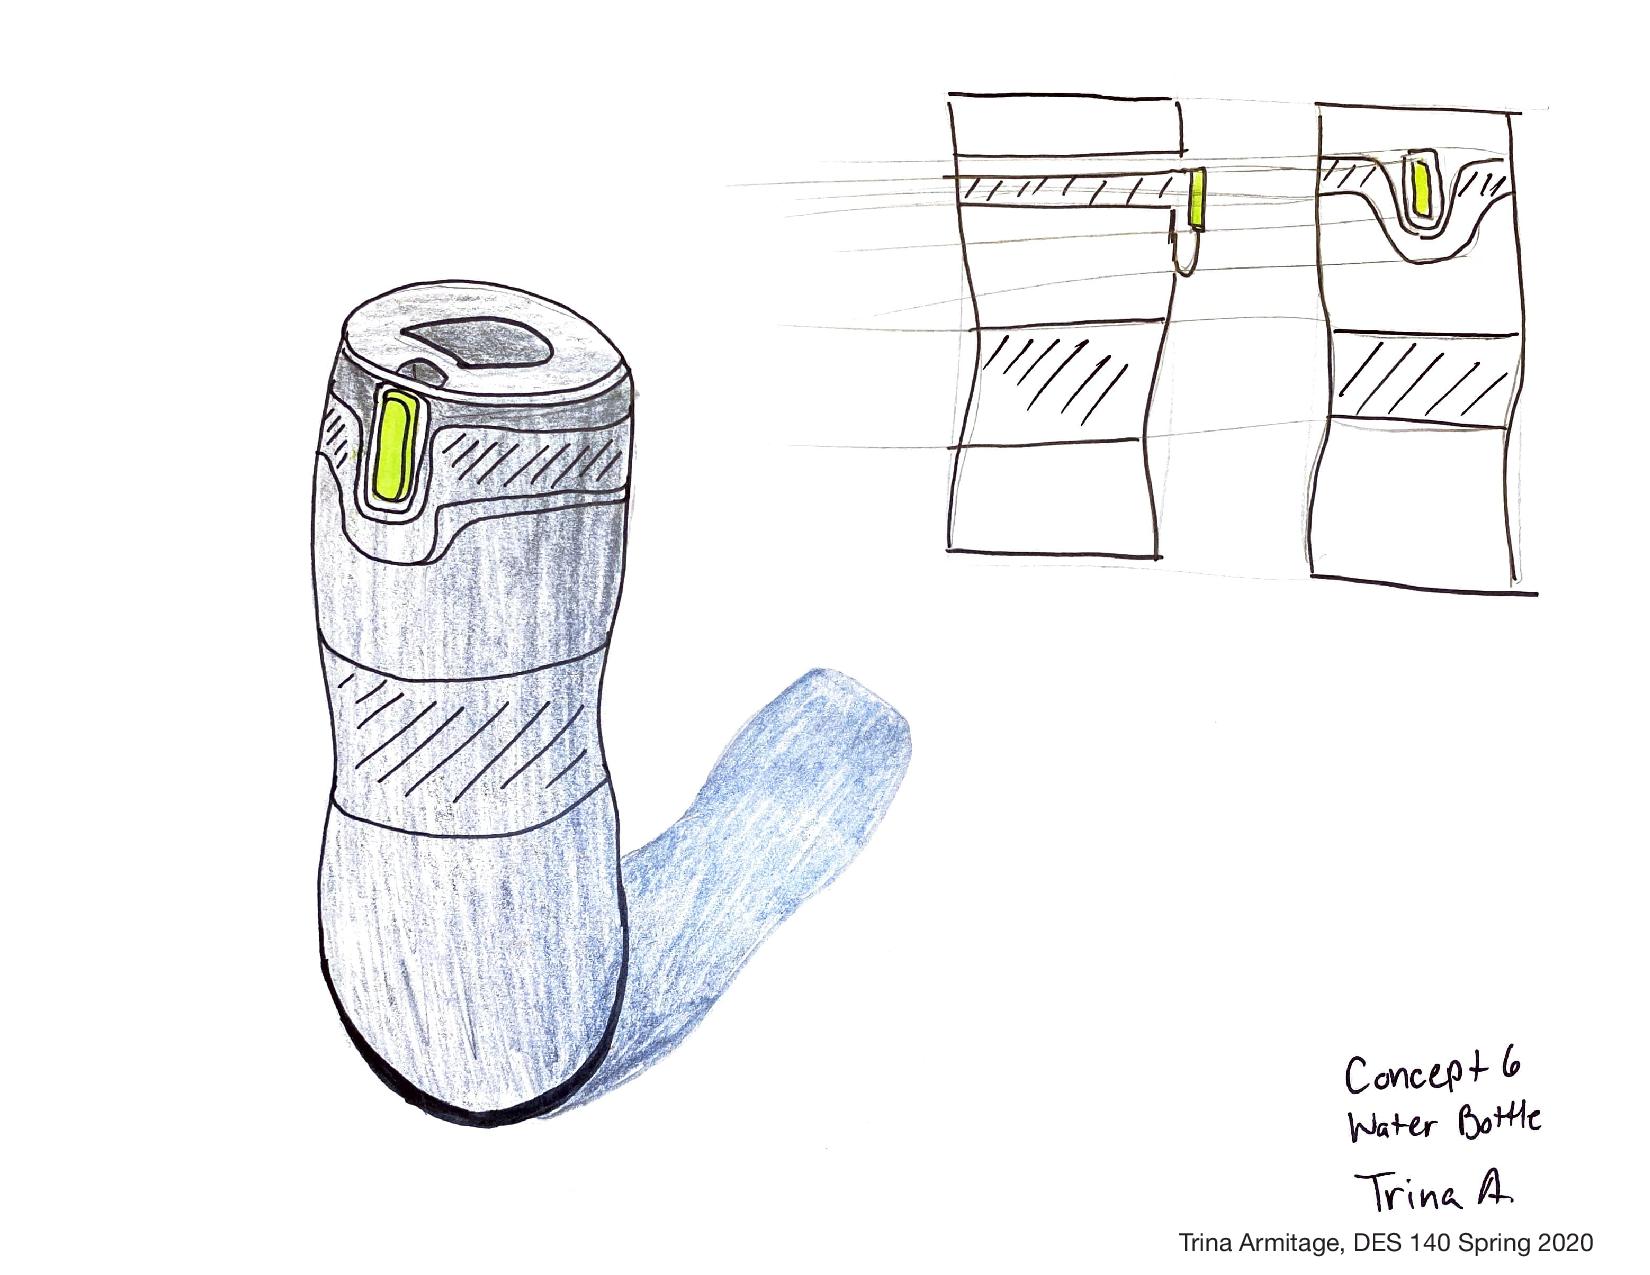 Concept 6
Water Bottle
Trina A.
Trina Armitage, DES 140 Spring 2020